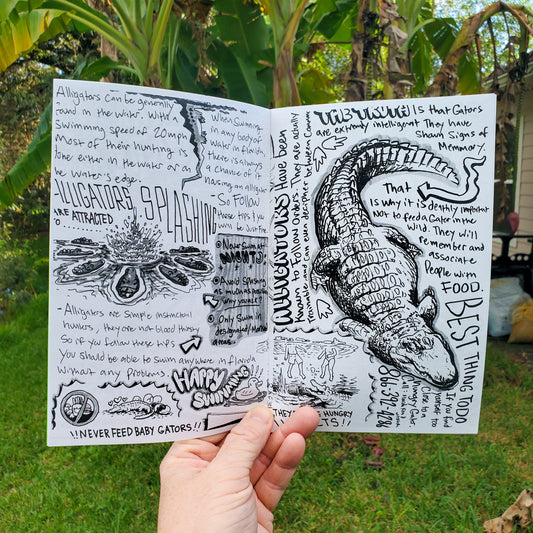 Alligators can be generally
found in the water. With a
Swimming speed of 20mph
Most of their hunting is
done either in the water or on
the water's edge.
When Swimming
in any body of
water in florida
there is always
a chance of it
having an alligator
So Follow
these tips &
ALLIGATORS
ARE ATTRACTED
TO
SPLASHING
Never Swim at
NIGHT
Avoid Splashing
as much as possible
why you're?
Only Swim in
designated/Marked
areas.
-Alligators are simple instinctual
hunters, they are not blood thirsty
So if you follow these tips
You should be able to Swim anywhere in florida
Without any problems.
HAPPY
SWIMMING
!!NEVER FEED BABY GATORS!!
Have been
Known to follow Orders. They are actually
trainable and Can even decipher between Common
Is that Gators
are extremely intelligent They have
Shown Signs of
Memory.
That
Is why it is deathly important
Not to feed a Gator in the
Wild. They will
remember and
associate
People with
FOOD.
BEST THING TO DO
If you find
yourself to
Close to a
Hungry Gator.
HUNGRY